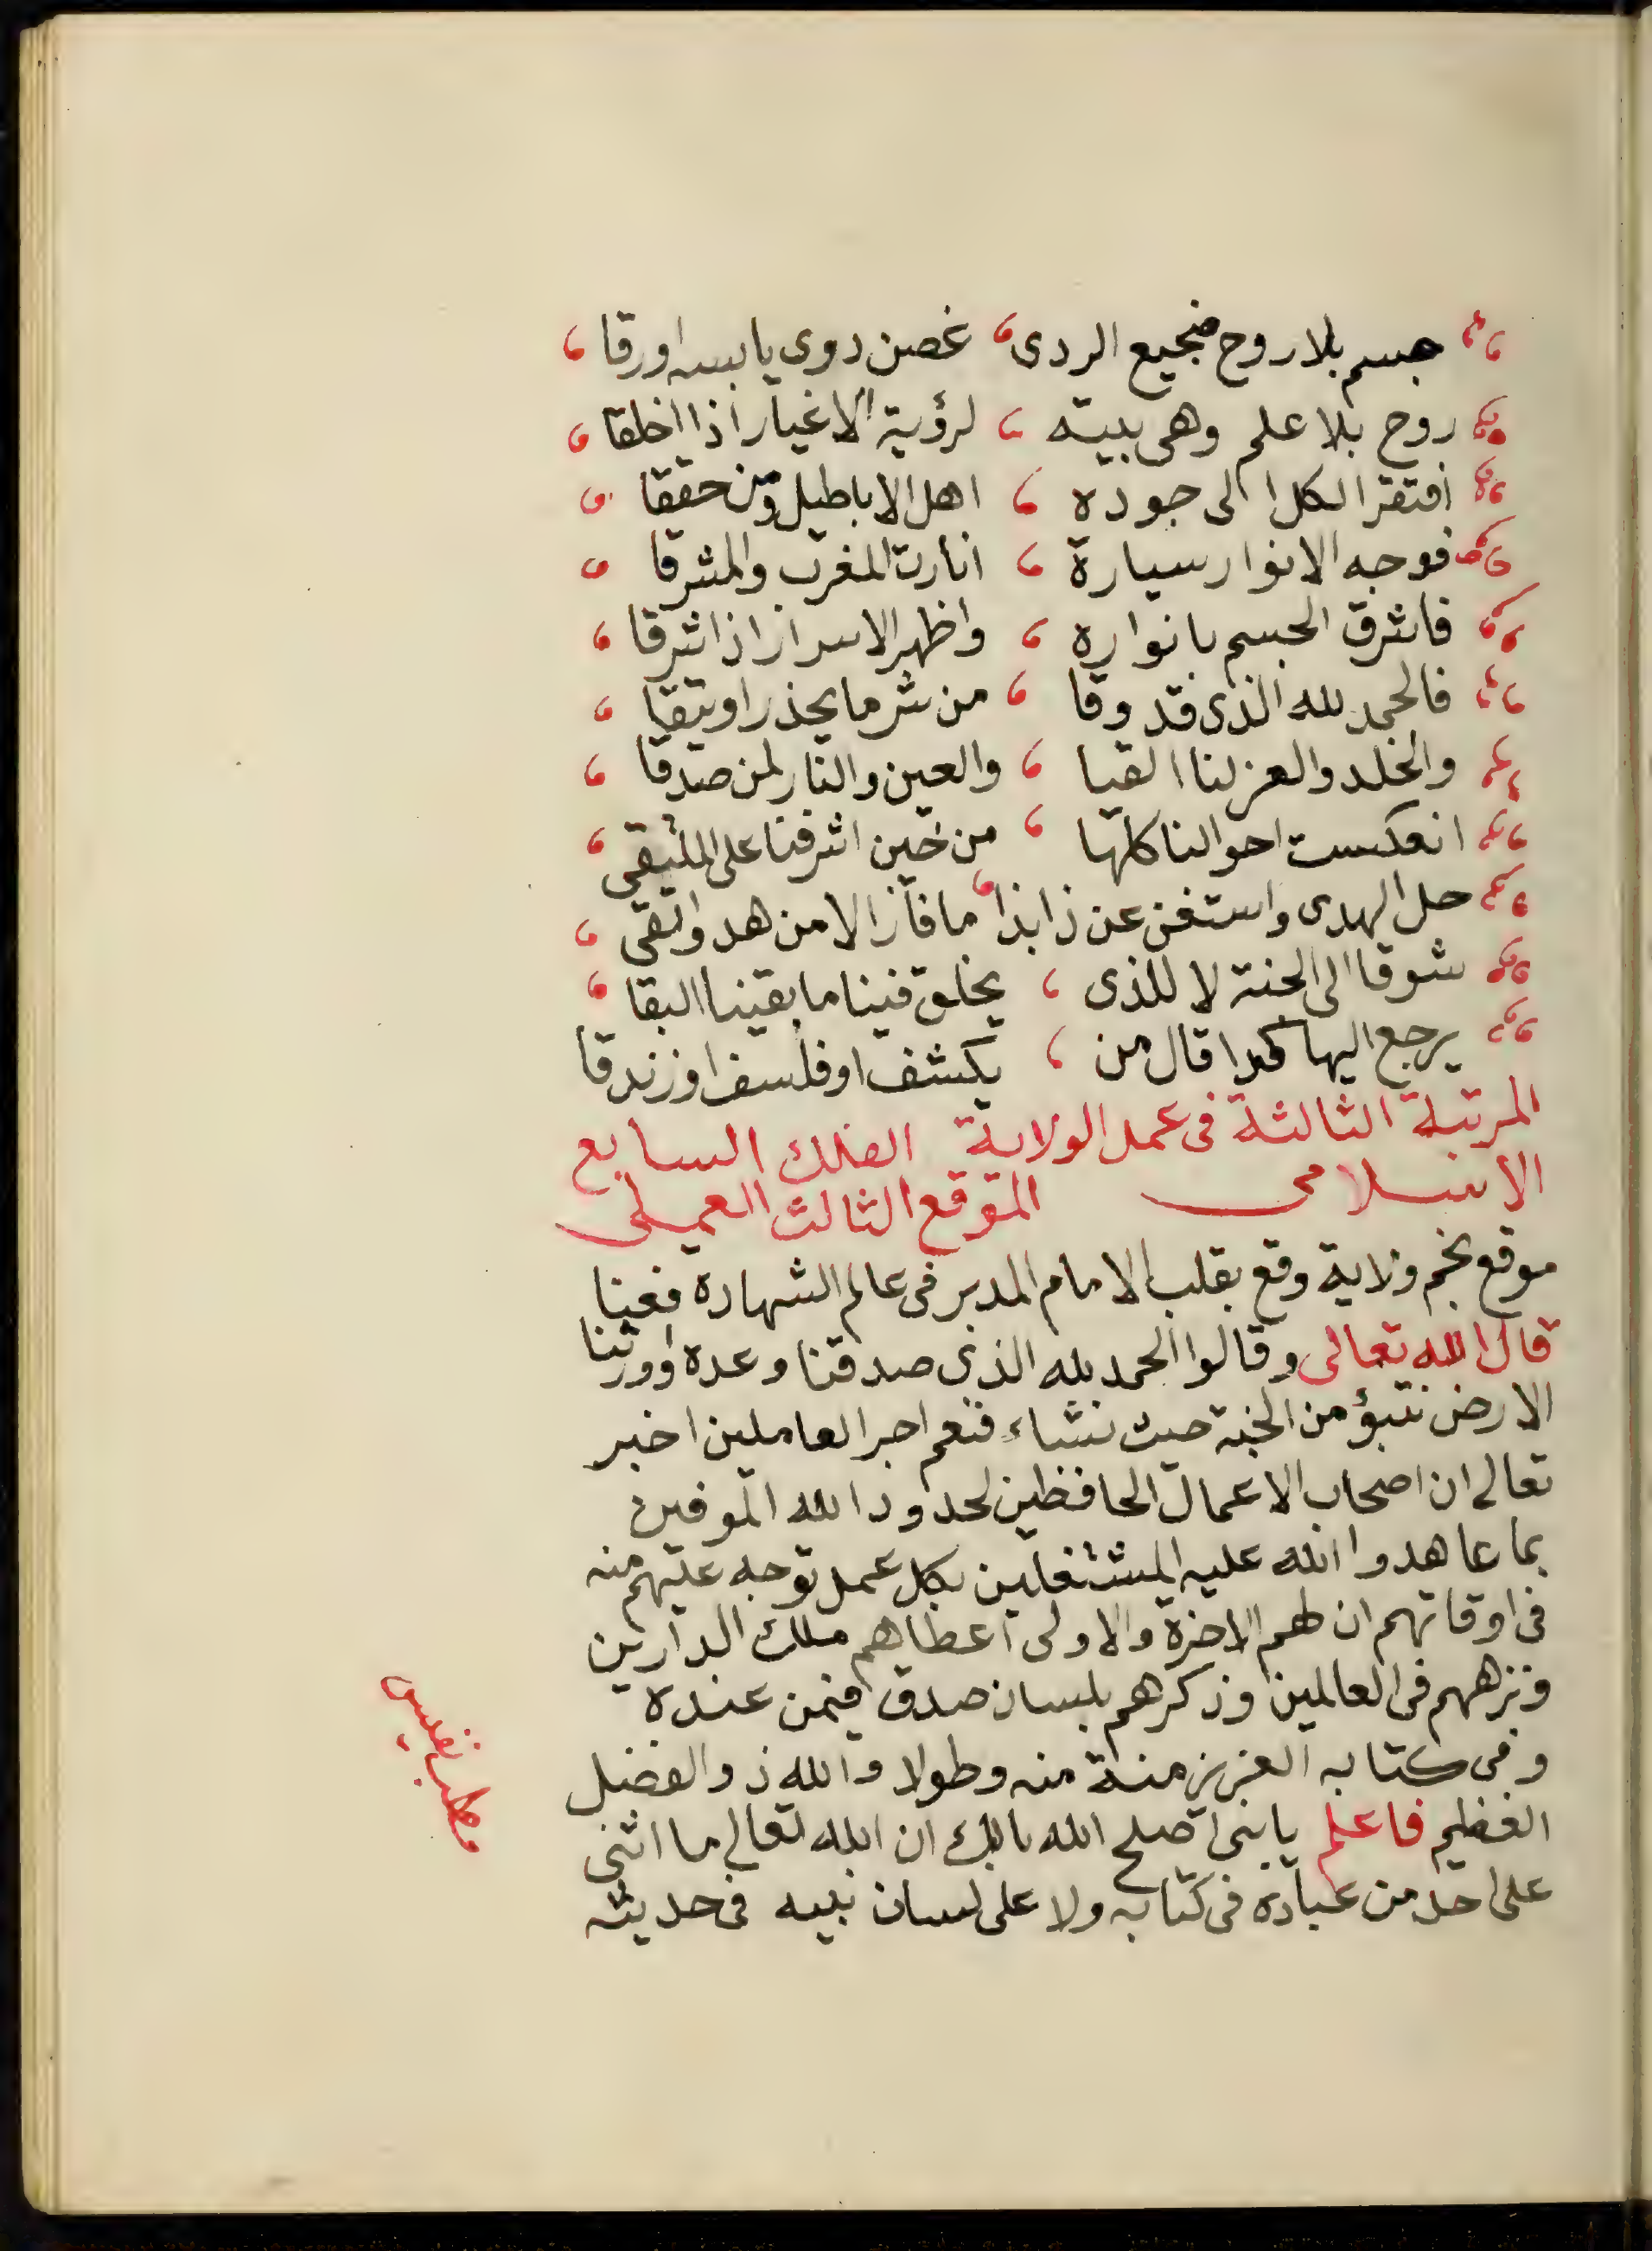 جسم بلا روح ضجيع الردى غصن ذوى يا بسه اورقا
روح بلا علم وهى بيته لرؤية الاغيار اذا خلقا
افتقر الكل الى جوده اهل الاباطيل ومن حققا
فوجه الانوار سيارة انارت المغرب والمشرقا
فاشرق الجسم بانواره واظهر الاسرار اذ اشرقا
فالحمد لله الذى قد وقا من شر ما يحذر او يتقا
والخلد والعز لنا القيا والعين والنار لمن صدقا
انعكست احوالنا كلها من حين اشرفنا على الملتقى
حل الهدى واستغن عن ذا بذا ما فاز الا من هد واتقى
شوقا الى الجنة لا للذى يخلق فينا ما بقينا البقا
يرجع اليها كلما قال من يكشف او فلسف او زندقا
المرتبة الثالثة فى عمل الولاية الفلك السابع
الاسلامى الموقع الثالث العملى
موقع نجم ولاية وقع بقلب الامام المدبر فى عالم الشهادة فعينا
قال الله تعالى وقالوا الحمد لله الذى صدقنا وعده واورثنا
الارض نتبؤ من الجنة حيث نشاء فنعم اجر العاملين اخبر
تعالى ان اصحاب الاعمال الحافظين لحدود الله الموفين
بما عاهدوا الله عليه المشتغلين بكل عمل توجه عليهم منه
فى اوقاتهم ان لهم الاخرة والاولى اعطاهم ملك الدارين
ونزههم فى العالمين وذكرهم بلسان صدق فيمن عنده
وفى كتابه العزيز منة منه وطولا والله ذو الفضل
العظيم فاعلم يا بنى اصلح الله بالك ان الله تعالى ما اثنى
على احد من عباده فى كتابه ولا على لسان نبيه فى حديثه
مطلب نفيس